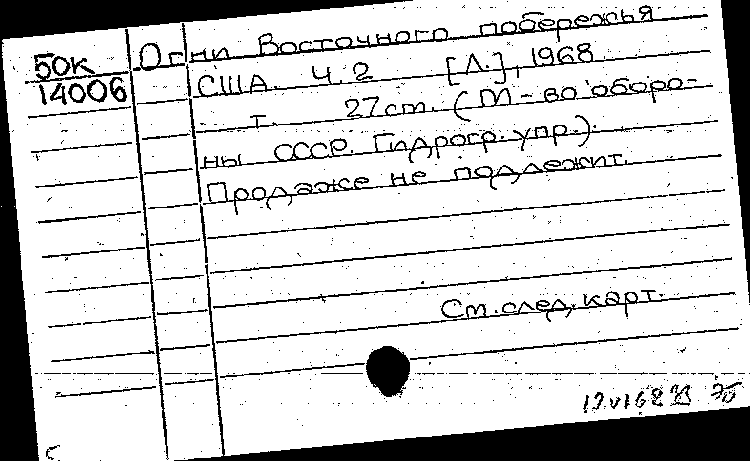 50к Огни Восточного побережья
14006 США. Ч. 2 [Л.], 1968
т. 27см. (М-во оборо-
ны СССР. Гидрогр. упр.).
Продаже не подлежит.
См. след. карт.